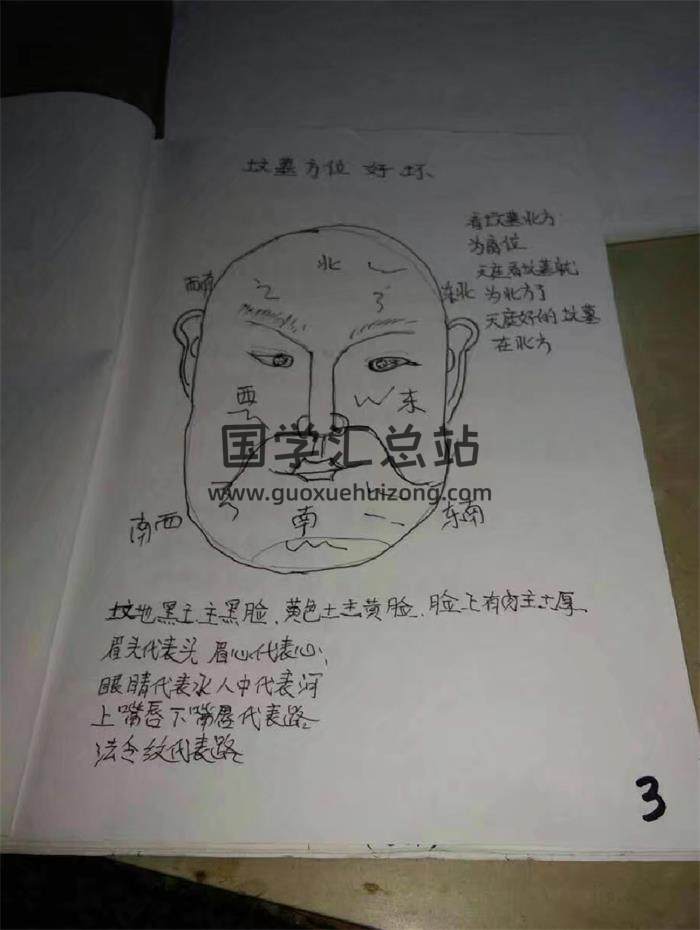 坟墓方位 好坏
看坟墓北方
为高位
天庭看坟墓就
为北方了
天庭好的坟墓
在北方
北
东北
西
东
国学汇总站
www.guoxuehuizong.com
南西
南
东南
坟地黑土主黑脸、黄色土主黄脸、脸上有肉主土厚、
眉头代表头 眉心代表心、
眼睛代表水人中代表河
上嘴唇下嘴唇代表路
法令纹代表路
3